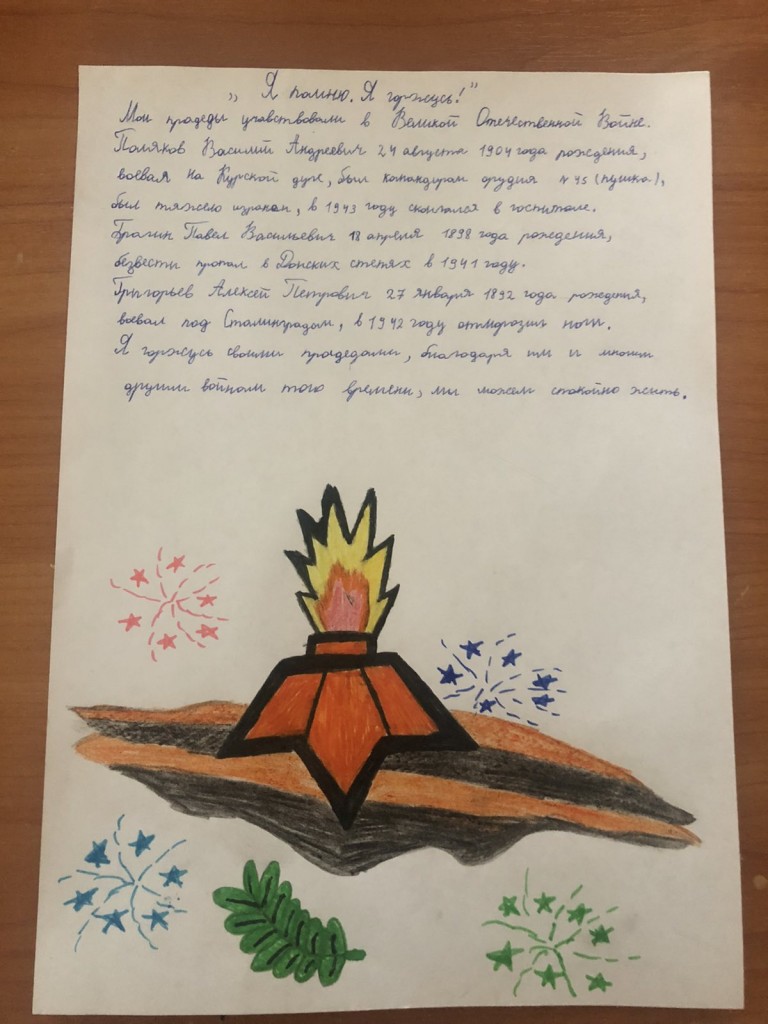 „Я помню. Я горжусь!"
Мои прадеды учавствовали в Великой Отечественной Войне.
Поляков Василий Андреевич 24 августа 1904 года рождения,
воевал на Курской дуге, был командиром орудия №45 (пушка),
был тяжело изранен, в 1943 году скончался в госпитале.
Брагин Павел Васильевич 18 апреля 1898 года рождения,
безвести пропал в Донских степях в 1941 году.
Григорьев Алексей Петрович 27 января 1892 года рождения,
воевал под Сталинградом, в 1942 году отморозил ноги.
Я горжусь своими прадедами, благодаря им и многим
другим войнам того времени, мы можем спокойно жить.